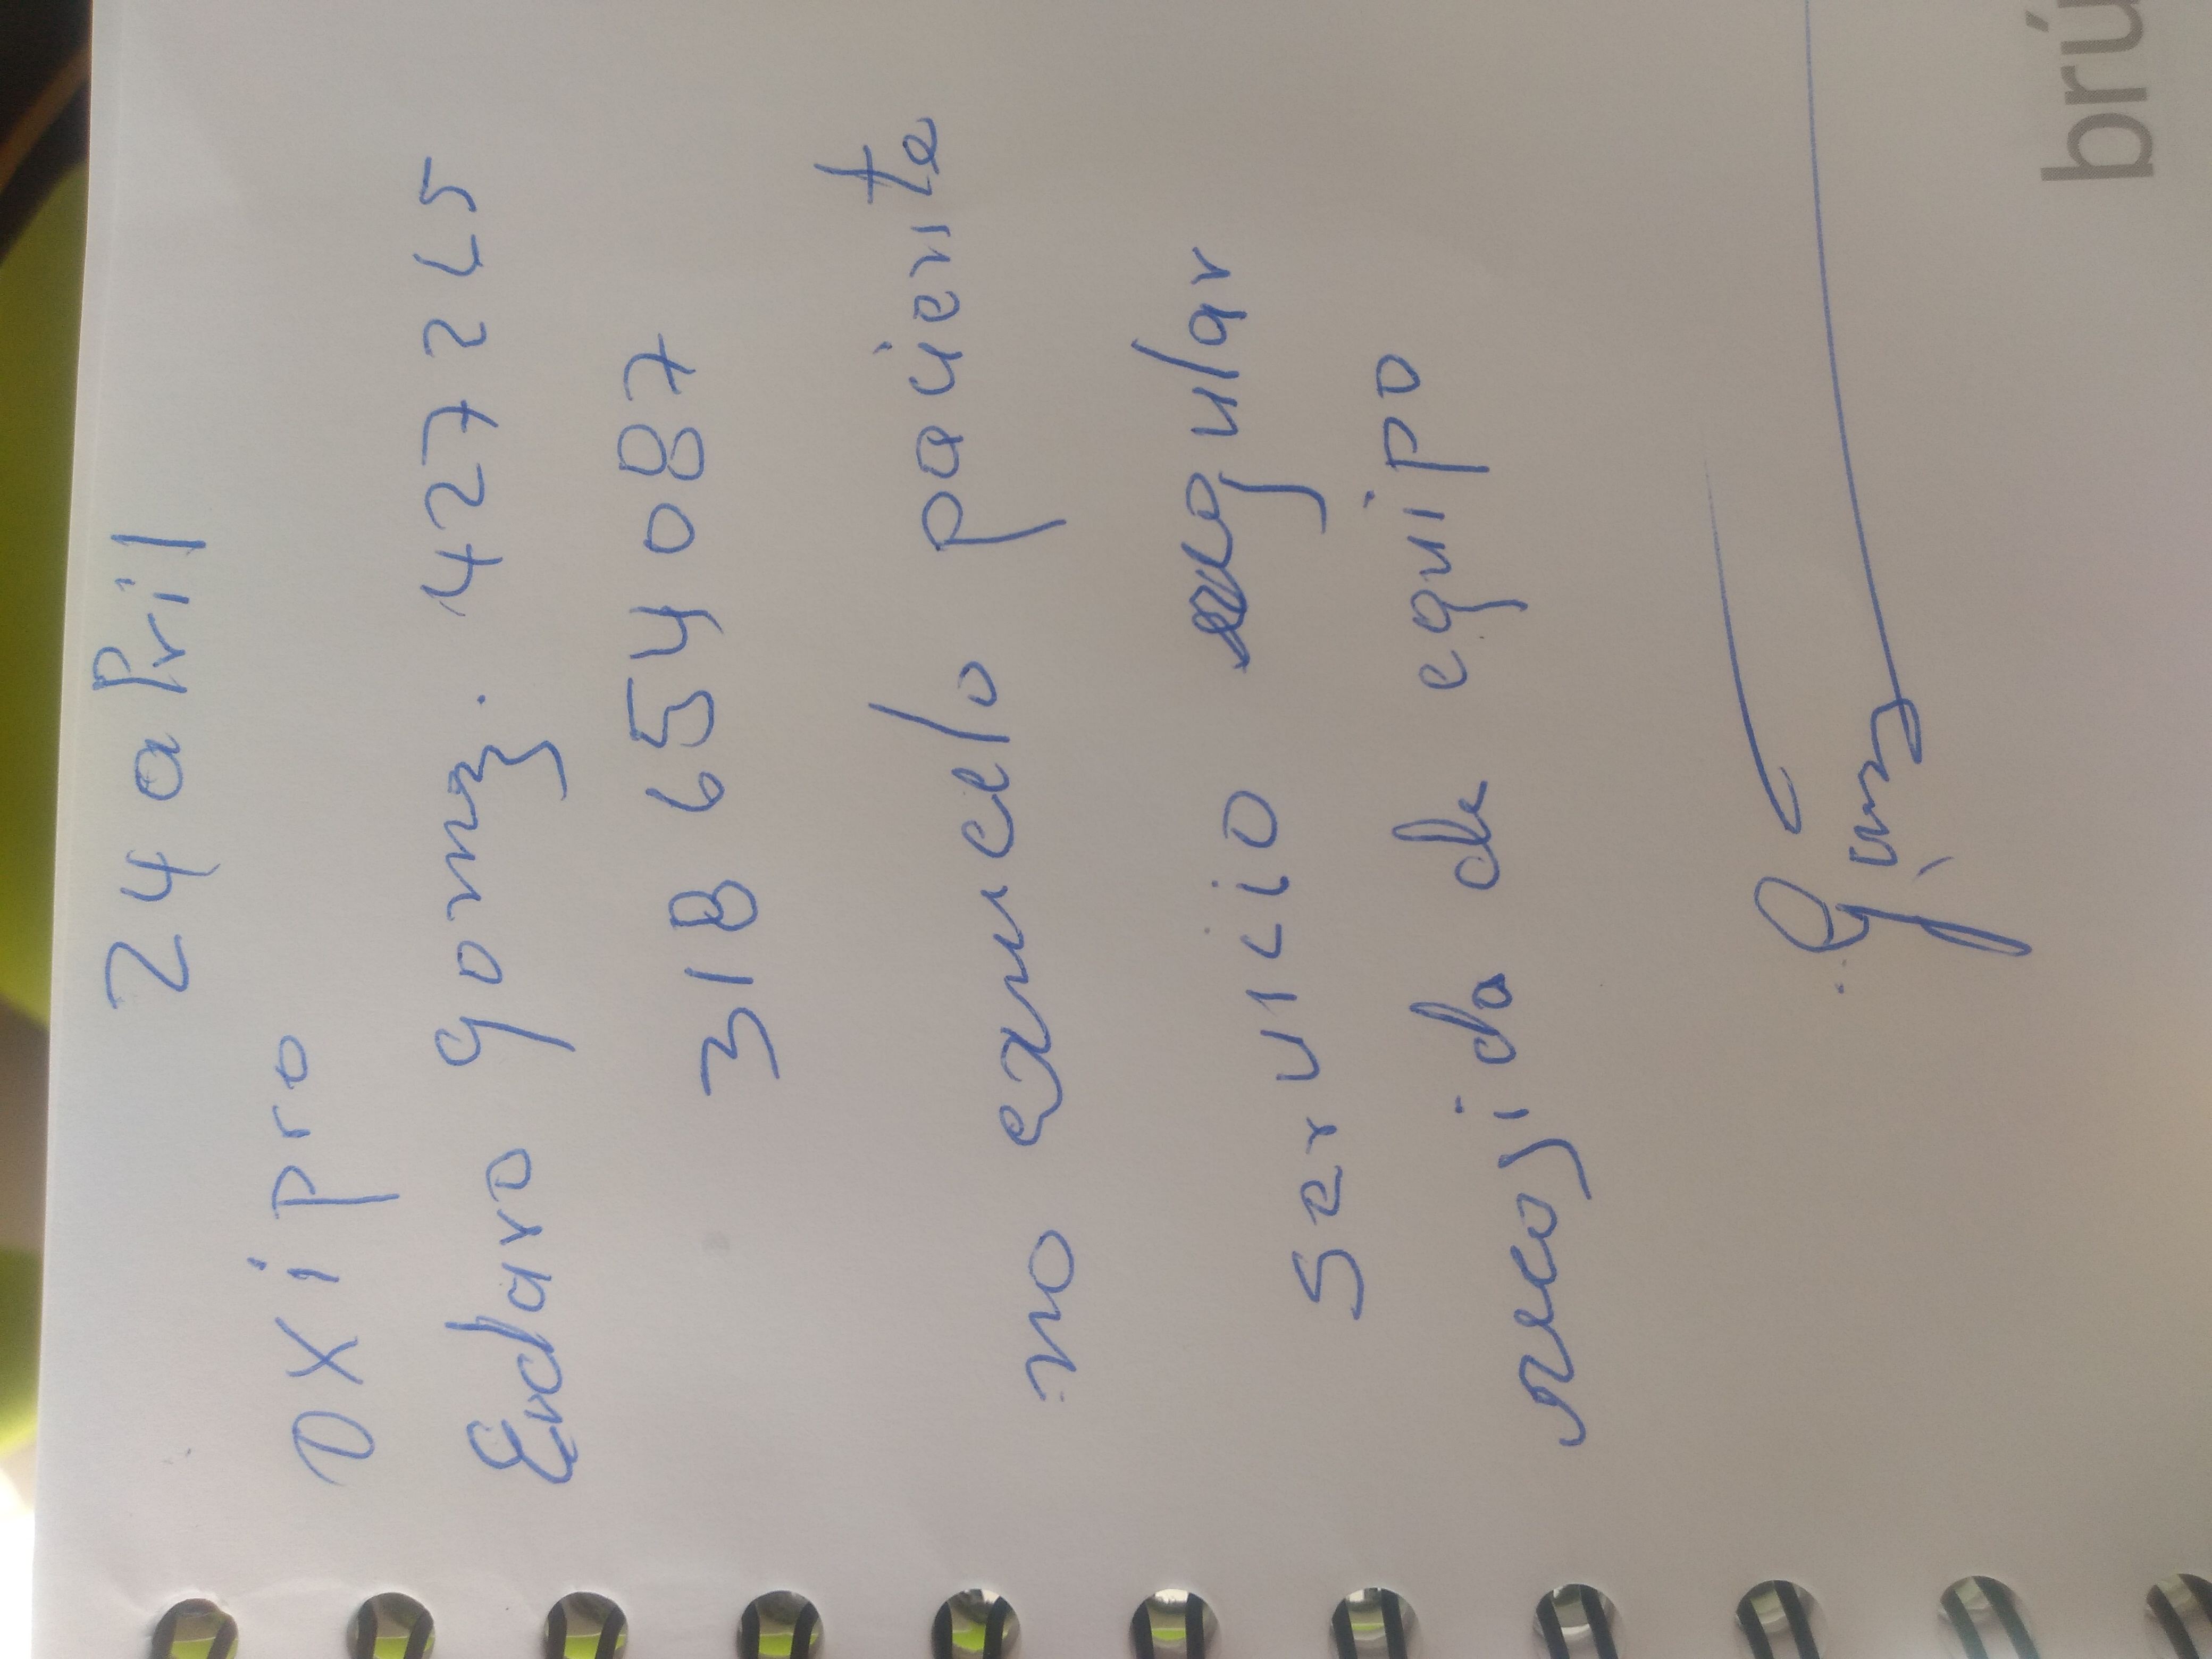 24 april
oxipro
Endaro gomz. 427265
318 654087
no cancelo pacienta
servicio regular
recojida de equipo
brú